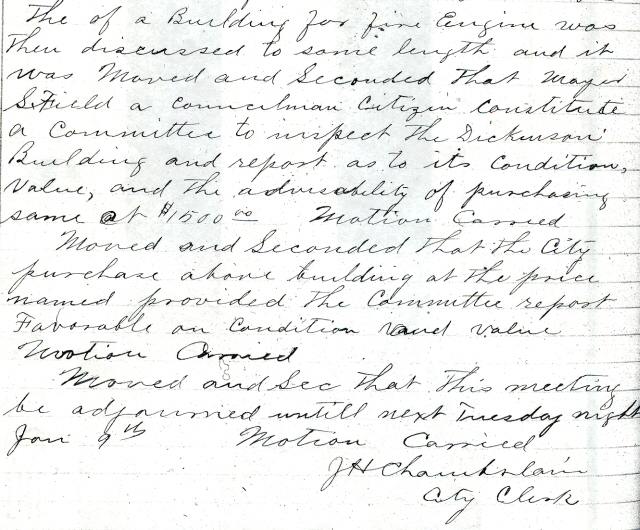 The of a Building for fire Engine was
then discussed to some length and it
was Moved and Seconded that Mayor
S. Field a Councilman Citizin Constitute
a Committee to inspect the Dickinson
Building and report as to its Condition,
Value, and the advisability of purchasing
same at $1500 00 Motion Carried
Moved and Seconded that the City
purchase above building at the price
named provided the Committee report
Favorable on Condition and value
Motion Carried
Moved and Sec that this meeting
be adjourned untill next Tuesday night
Jan 9th Motion Carried
JH Chamberlain
City Clerk